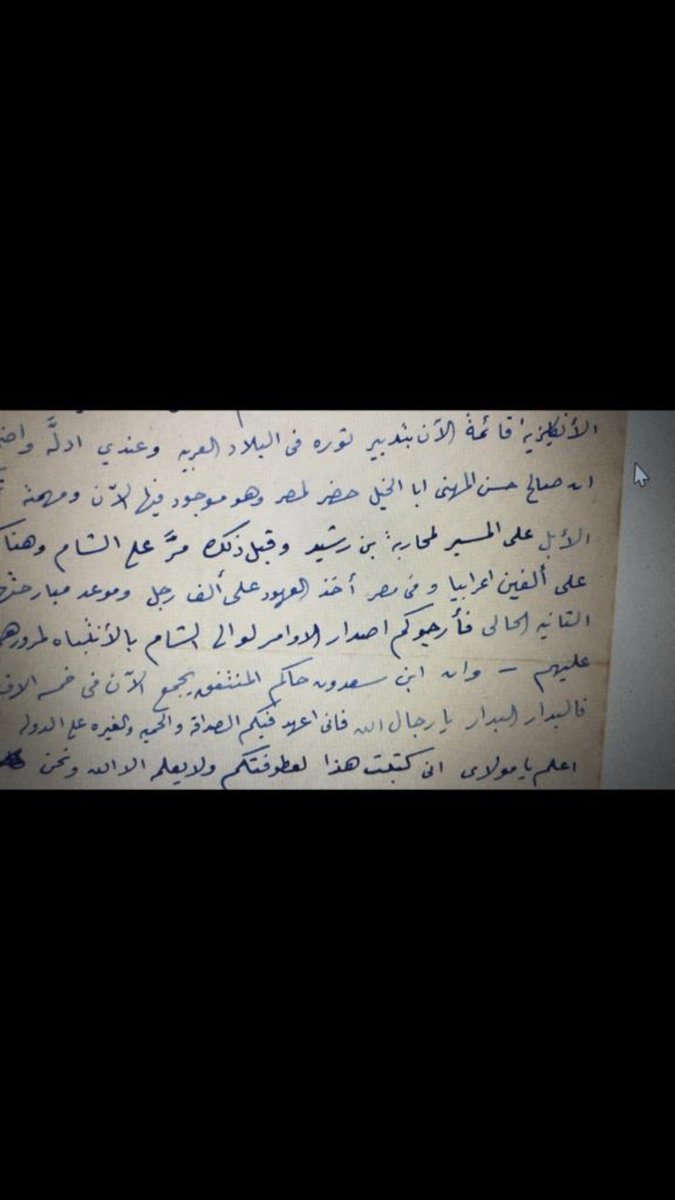 الأنكليزية قائمة الآن بتدبير ثوره فى البلاد العربيه وعندي ادلَّه
ان صالح حسن المهنى ابا الخيل حضر لمصر وهو موجود فيها لآن ومهمته
الأبل على المسير لمحاربة بن رشيد وقبل ذلك مرَّ على الشام وهناك
على ألفين اعرابيا وفى مصر أخذ العهود على ألف رجل وموعد
الثانيه الحالى فأرجوكم اصدار الاوامر لوالى الشام بالأنتباه لمرورهم
عليهم – وان ابن سعدون حاكم المنتفق يجمع الآن فى خمسه
فالبدار البدار يا رجال الله فانى اعهد فيكم الصداقة والحميه والغيره على الدوله
اعلم يا مولاى انى كتبت هذا لعطوفتكم ولا يعلم الا الله ونحن